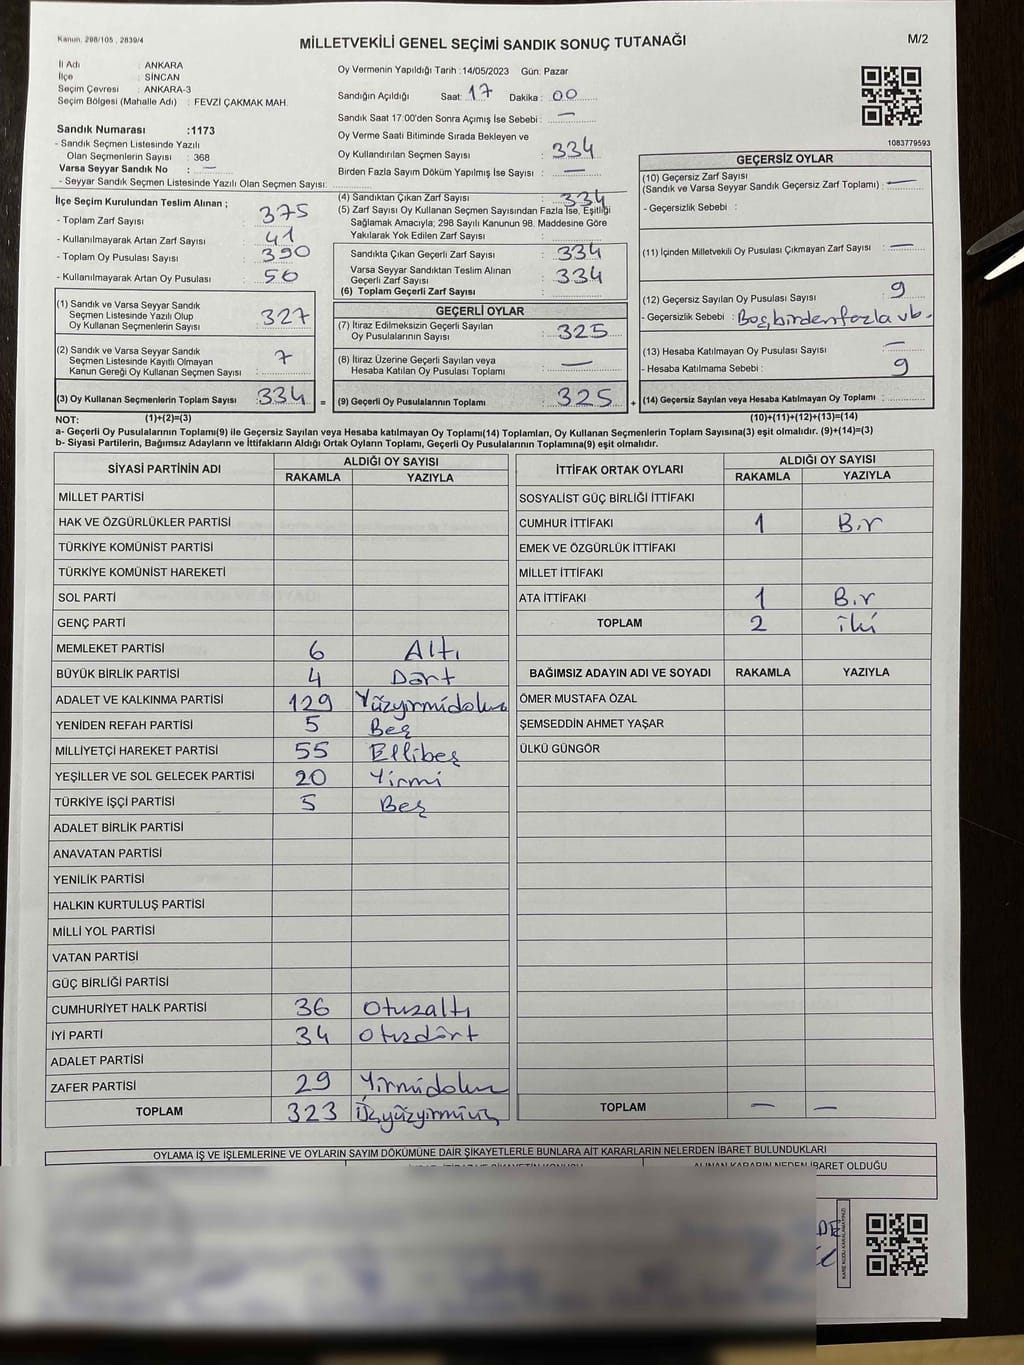 Kanun. 298/105 , 2839/4
M/2
MİLLETVEKİLİ GENEL SEÇİMİ SANDIK SONUÇ TUTANAĞI
İl Adı : ANKARA
İlçe : SİNCAN
Seçim Çevresi : ANKARA-3
Seçim Bölgesi (Mahalle Adı) : FEVZİ ÇAKMAK MAH.
Sandık Numarası :1173
- Sandık Seçmen Listesinde Yazılı
Olan Seçmenlerin Sayısı : 368
Varsa Seyyar Sandık No : —
- Seyyar Sandık Seçmen Listesinde Yazılı Olan Seçmen Sayısı:
Oy Vermenin Yapıldığı Tarih :14/05/2023 Gün: Pazar
Sandığın Açıldığı Saat: 17 Dakika : 00
Sandık Saat 17:00'den Sonra Açımış İse Sebebi : —
Oy Verme Saati Bitiminde Sırada Bekleyen ve
Oy Kullandırılan Seçmen Sayısı : 334
Birden Fazla Sayım Döküm Yapılmış İse Sayısı : —
1083779593
İlçe Seçim Kurulundan Teslim Alınan ;
- Toplam Zarf Sayısı : 375
- Kullanılmayarak Artan Zarf Sayısı : 41
- Toplam Oy Pusulası Sayısı : 390
- Kullanılmayarak Artan Oy Pusulası : 56
(1) Sandık ve Varsa Seyyar Sandık
Seçmen Listesinde Yazılı Olup
Oy Kullanan Seçmenlerin Sayısı : 327
(2) Sandık ve Varsa Seyyar Sandık
Seçmen Listesinde Kayıtlı Olmayan
Kanun Gereği Oy Kullanan Seçmen Sayısı : 7
(3) Oy Kullanan Seçmenlerin Toplam Sayısı : 334 =
(4) Sandıktan Çıkan Zarf Sayısı : 334
(5) Zarf Sayısı Oy Kullanan Seçmen Sayısından Fazla İse, Eşitliği
Sağlamak Amacıyla; 298 Sayılı Kanunun 98. Maddesine Göre
Yakılarak Yok Edilen Zarf Sayısı :
Sandıkta Çıkan Geçerli Zarf Sayısı : 334
Varsa Seyyar Sandıktan Teslim Alınan
Geçerli Zarf Sayısı : 334
(6) Toplam Geçerli Zarf Sayısı :
GEÇERLİ OYLAR
(7) İtiraz Edilmeksizin Geçerli Sayılan
Oy Pusulalarının Sayısı : 325
(8) İtiraz Üzerine Geçerli Sayılan veya
Hesaba Katılan Oy Pusulası Toplamı : —
(9) Geçerli Oy Pusulalarının Toplamı : 325 +
GEÇERSİZ OYLAR
(10) Geçersiz Zarf Sayısı
(Sandık ve Varsa Seyyar Sandık Geçersiz Zarf Toplamı) : —
- Geçersizlik Sebebi :
(11) İçinden Milletvekili Oy Pusulası Çıkmayan Zarf Sayısı : —
(12) Geçersiz Sayılan Oy Pusulası Sayısı : 9
- Geçersizlik Sebebi : Boş, birden fazla vb.
(13) Hesaba Katılmayan Oy Pusulası Sayısı : —
- Hesaba Katılmama Sebebi : 9
(14) Geçersiz Sayılan veya Hesaba Katılmayan Oy Toplamı :
NOT: (1)+(2)=(3) (10)+(11)+(12)+(13)=(14)
a- Geçerli Oy Pusulalarının Toplamı(9) ile Geçersiz Sayılan veya Hesaba katılmayan Oy Toplamı(14) Toplamları, Oy Kullanan Seçmenlerin Toplam Sayısına(3) eşit olmalıdır. (9)+(14)=(3)
b- Siyasi Partilerin, Bağımsız Adayların ve İttifakların Aldığı Ortak Oyların Toplamı, Geçerli Oy Pusulalarının Toplamına(9) eşit olmalıdır.
SİYASİ PARTİNİN ADI ALDIĞI OY SAYISI
RAKAMLA YAZIYLA
MİLLET PARTİSİ
HAK VE ÖZGÜRLÜKLER PARTİSİ
TÜRKİYE KOMÜNİST PARTİSİ
TÜRKİYE KOMÜNİST HAREKETİ
SOL PARTİ
GENÇ PARTİ
MEMLEKET PARTİSİ 6 Altı
BÜYÜK BİRLİK PARTİSİ 4 Dört
ADALET VE KALKINMA PARTİSİ 129 Yüzyirmidokuz
YENİDEN REFAH PARTİSİ 5 Beş
MİLLİYETÇİ HAREKET PARTİSİ 55 Ellibeş
YEŞİLLER VE SOL GELECEK PARTİSİ 20 Yirmi
TÜRKİYE İŞÇİ PARTİSİ 5 Beş
ADALET BİRLİK PARTİSİ
ANAVATAN PARTİSİ
YENİLİK PARTİSİ
HALKIN KURTULUŞ PARTİSİ
MİLLİ YOL PARTİSİ
VATAN PARTİSİ
GÜÇ BİRLİĞİ PARTİSİ
CUMHURİYET HALK PARTİSİ 36 Otuzaltı
İYİ PARTİ 34 Otuzdört
ADALET PARTİSİ
ZAFER PARTİSİ 29 Yirmidokuz
TOPLAM 323 Üçyüzyirmiüç
İTTİFAK ORTAK OYLARI ALDIĞI OY SAYISI
RAKAMLA YAZIYLA
SOSYALİST GÜÇ BİRLİĞİ İTTİFAKI
CUMHUR İTTİFAKI 1 Bir
EMEK VE ÖZGÜRLÜK İTTİFAKI
MİLLET İTTİFAKI
ATA İTTİFAKI 1 Bir
TOPLAM 2 İki
BAĞIMSIZ ADAYIN ADI VE SOYADI RAKAMLA YAZIYLA
ÖMER MUSTAFA ÖZAL
ŞEMSEDDİN AHMET YAŞAR
ÜLKÜ GÜNGÖR
TOPLAM — —
OYLAMA İŞ VE İŞLEMLERİNE VE OYLARIN SAYIM DÖKÜMÜNE DAİR ŞİKAYETLERLE BUNLARA AİT KARARLARIN NELERDEN İBARET BULUNDUKLARI
ALINAN KARARIN NEDEN İBARET OLDUĞU
KARE KODU KARALAMAYINIZ!